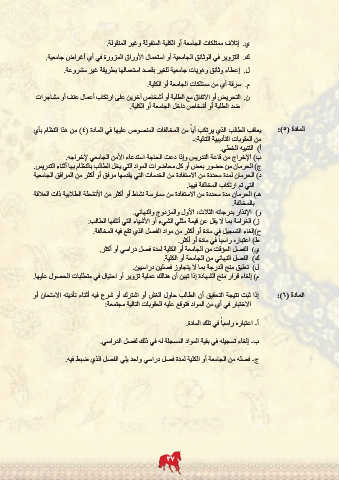 ي. إتلاف ممتلكات الجامعة أو الكلية المنقولة وغير المنقولة.
ك. التزوير في الوثائق الجامعية أو استعمال الأوراق المزورة في أي أغراض جامعية.
ل. إعطاء وثائق وهويات جامعية للغير بقصد استعمالها بطريقة غير مشروعة.
م. سرقة أي من ممتلكات الجامعة أو الكلية.
ن. التحريض أو الاتفاق مع الطلبة أو أشخاص آخرين على ارتكاب أعمال عنف أو مشاجرات
ضد الطلبة أو أشخاص داخل الجامعة أو الكلية.
المادة (٥): يعاقب الطالب الذي يرتكب أياً من المخالفات المنصوص عليها في المادة (٤) من هذا النظام بأي
من العقوبات التأديبية التالية:
أ) التنبيه الخطي.
ب) الإخراج من قاعة التدريس وإذا دعت الحاجة استدعاء الأمن الجامعي لإخراجه.
ج) الحرمان من حضور بعض أو كل محاضرات المواد التي يخل الطالب بالنظام بها أثناء التدريس.
د) الحرمان لمدة محددة من الاستفادة من الخدمات التي يقدمها مرفق أو أكثر من المرافق الجامعية
التي تم ارتكاب المخالفة فيها.
هـ) الحرمان مدة محددة من الاستفادة من ممارسة نشاط أو أكثر من الأنشطة الطلابية ذات العلاقة
بالمخالفة.
و) الإنذار بدرجاته الثلاث: الأول والمزدوج والنهائي.
ز) الغرامة بما لا يقل عن قيمة مثلي الشيء أو الأشياء التي أتلفها الطالب.
ح) إلغاء التسجيل في مادة أو أكثر من مواد الفصل الذي تقع فيه المخالفة.
ط) اعتباره راسباً في مادة أو أكثر.
ي) الفصل المؤقت من الجامعة أو الكلية لمدة فصل دراسي أو أكثر.
ك) الفصل النهائي من الجامعة أو الكلية.
ل) تعليق منح الدرجة بما لا يتجاوز فصلين دراسيين.
م) إلغاء قرار منح الشهادة إذا تبين أن هنالك عملية تزوير أو احتيال في متطلبات الحصول عليها.
المادة (٦): إذا ثبت نتيجة التحقيق أن الطالب حاول الغش أو اشترك أو شرع فيه أثناء تأديته الامتحان أو
الاختبار في أي من المواد فتوقع عليه العقوبات التالية مجتمعة:
أ. اعتباره راسباً في تلك المادة.
ب. إلغاء تسجيله في بقية المواد المسجلة له في ذلك الفصل الدراسي.
ج. فصله من الجامعة أو الكلية لمدة فصل دراسي واحد يلي الفصل الذي ضبط فيه.